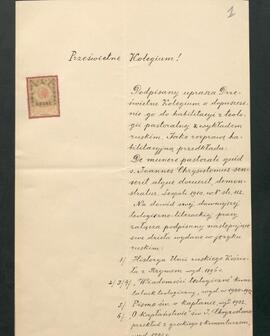 1
Prześwietne Kolegium!
Podpisany uprasza Prze-
świetne Kolegium o dopuszcze-
nie go do habilitacyi z teolo-
gii pastoralnej z wykładem
ruskim. Jako rozprawę ha-
bilitacyjną przedkłada:
De munere pastorali quid
s. Joannes Chrysostomus sen-
serit atque docuerit, demon-
stratur. Leopoli 1910,
Na dowód swej dawniejszej
teologiczno-literackiej pracy
załącza podpisany następują-
ce swe dzieła wydane w języku
ruskim:
1/ Historya Unii ruskiej Kościo-
ła z Rzymem wyd. 1896 r.
2/3/4/ Wiadomości teologiczne
5/ Pismo św. o kapłanie, wyd. 1902
6/ O Kapłaństwie św. J. Chryzostoma
przekład z greckiego